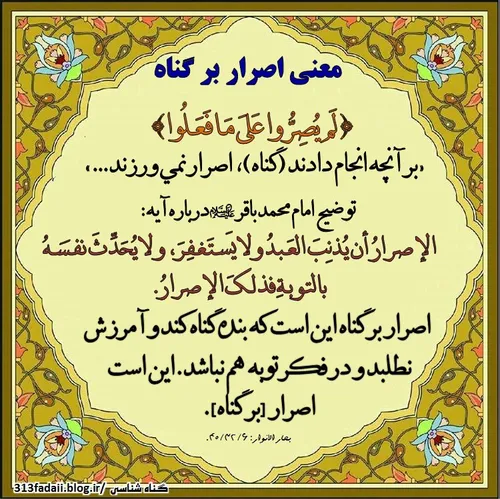 معنی اصرار بر گناه
﴿لَم يُصِرُّوا عَلَى مَا فَعَلُوا﴾
«بر آنچه انجام دادند (گناه)، اصرار نمي ورزند...»
توضيح امام محمد باقر درباره آيه:
الإصرارُ أن يُذنِبَ العَبدُ ولا يَستَغفِرَ، ولا يُحَدِّثَ نفسَهُ
بالتوبةِ فذلكَ الإصرارُ.
اصرار بر گناه این است که بنده گناه کند و آمرزش
نطلبد و در فکر توبه هم نباشد. این است
اصرار [بر گناه].
بحار الانوار: ۴۰/۳۲/۶.
گناه شناسی /313fadaii.blog.ir